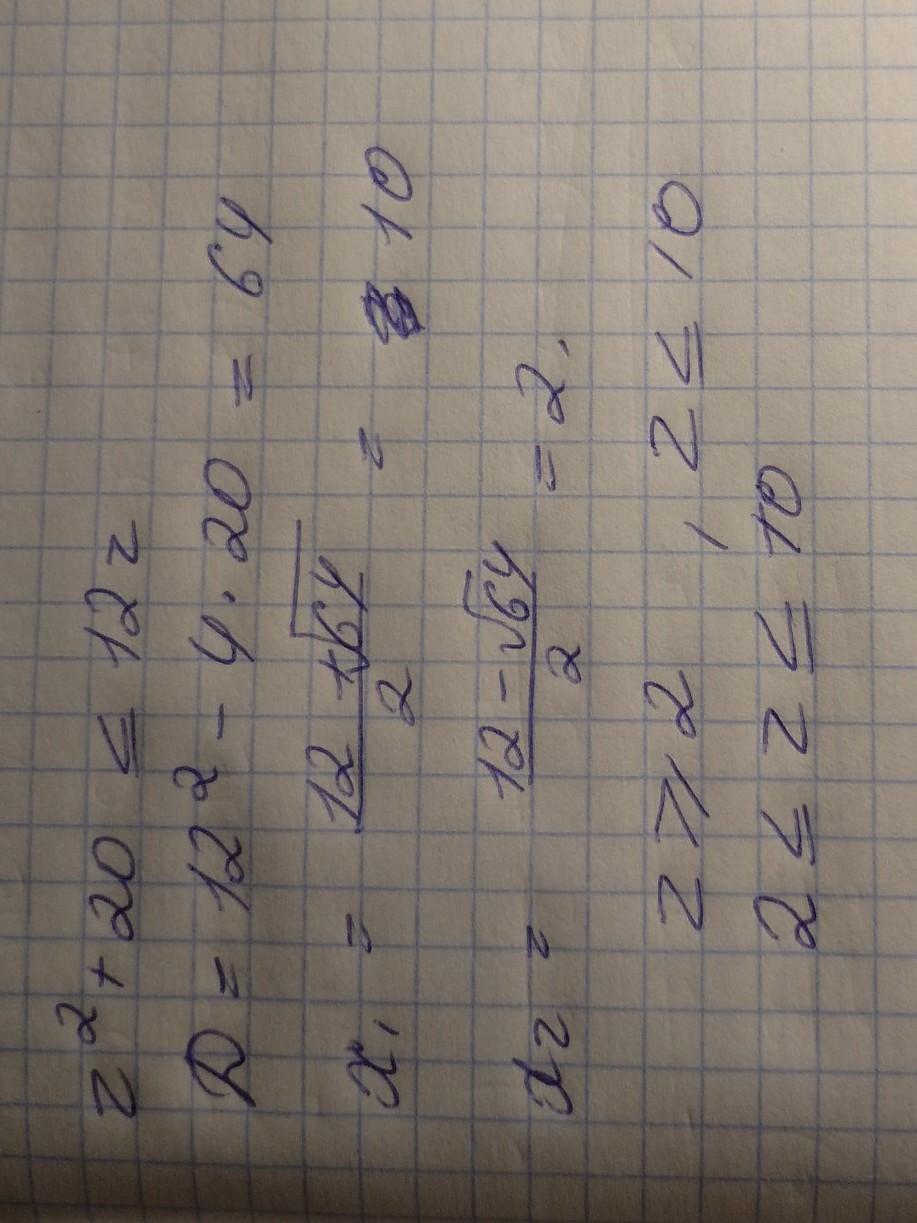 z² + 20 ≤ 12z
D = 12² - 4 · 20 = 64
x₁ = (12 + √64)/2 = 10
x₂ = (12 - √64)/2 = 2.
z ⩾ 2 , z ≤ 10
2 ≤ z ≤ 10